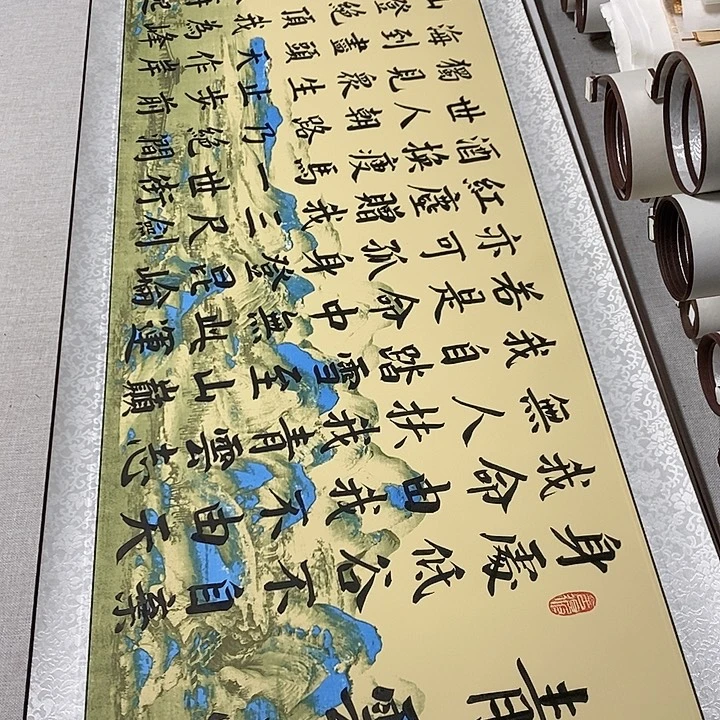 青雲
身處低谷不自棄
我命由我不由天
無人扶我青雲志
我自踏雪至山巔
若是命中無此運
亦可孤身登昆崘
紅塵贈我三尺劍
酒換瘦馬一世街
世人朝路乃絕間
獨見衆生止步前
海到盡頭天作岸
山登絕頂我為峰